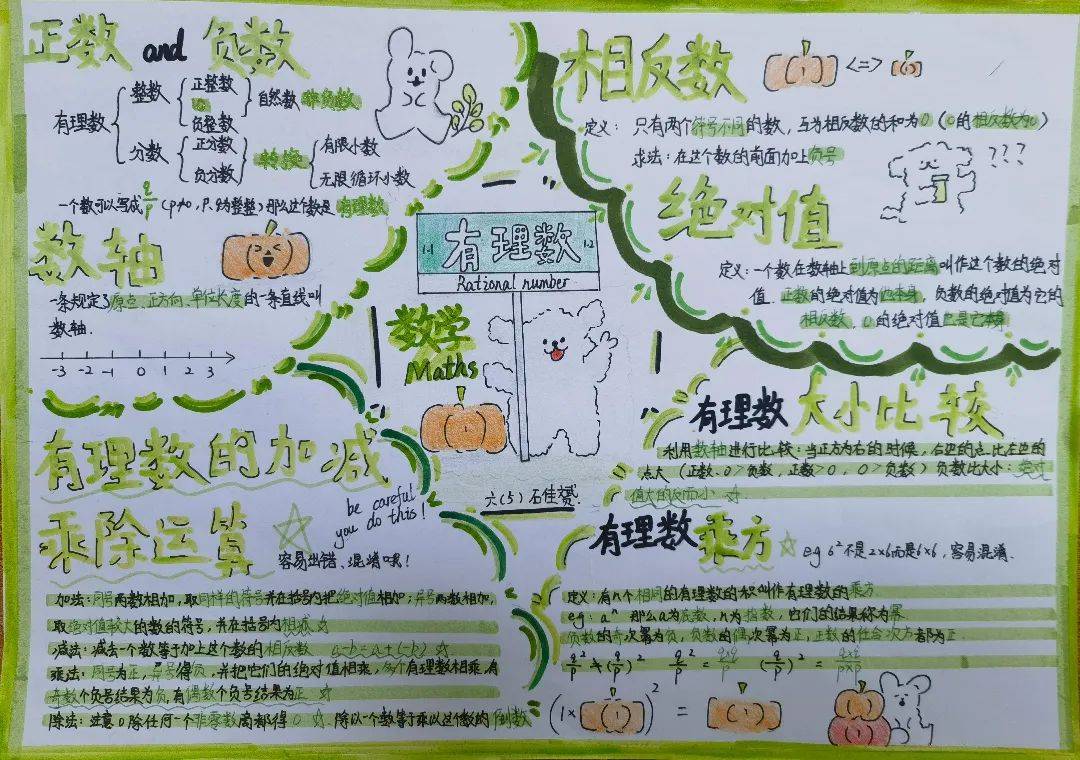 正数 and 负数
有理数
整数
正整数
0
负整数
自然数 非负数
分数
正分数
负分数
转换
有限小数
无限循环小数
一个数可以写成q/p(p≠0,P.q为整整)那么这个数是有理数
数轴
一条规定了原点、正方向、单位长度的一条直线叫
数轴.
-3 -2 -1 0 1 2 3
相反数
<=>
定义: 只有两个符号不同的数,互为相反数的和为0(0的相反数为0)
求法:在这个数的前面加上负号
???
绝对值
定义:一个数在数轴上到原点的距离叫作这个数的绝对
值. 正数的绝对值为它本身, 负数的绝对值为它的
相反数、0的绝对值也是它本身
1.1 有理数 1.2
Rational number
数学
Maths
六(5)石佳赟
有理数的加减
乘除运算
be careful
you do this!
容易出错、混淆哦!
加法:同号两数相加,取同样的符号并在括号内把绝对值相加;异号两数相加,
取绝对值较大的数的符号,并在括号内相减
减法:减去一个数等于加上这个数的相反数 a-b=a+(-b)
乘法:同号为正,异号得负,并把它们的绝对值相乘,多个有理数相乘,有
奇数个负号结果为负,有偶数个负号结果为正
除法:注意0除任何一个非零数商都得0 除以一个数等于乘以这个数的倒数
有理数大小比较
利用数轴进行比较:当正方为右的时候,右边的点比左边的
点大(正数、0>负数,正数>0,0>负数)负数比大小:绝对
值大的反而小
有理数乘方
eg 6²不是2×6而是6×6,容易混淆.
定义:有n个相同的有理数的积叫作有理数的乘方
eg:aⁿ 那么a为底数,n为指数,它们的结果称为幂
负数的奇次幂为负,负数的偶次幂为正,正数的任合次方都为正
q²/p ≠ (q/p)² q²/p = q×q/p (q/p)² = q×q/p×p
(1× )² =